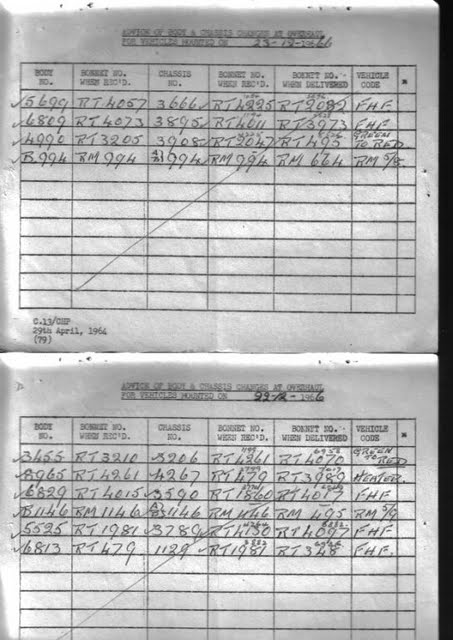 ADVICE OF BODY & CHASSIS CHANGES AT OVERHAUL
FOR VEHICLES MOUNTED ON 23-12-1966
BODY NO. BONNET NO. WHEN REC'D. CHASSIS NO. BONNET NO. WHEN REC'D. BONNET NO. WHEN DELIVERED VEHICLE CODE *
5699 RT4057 3666 RT4225 RT2082 FHF
6809 RT4073 3895 RT4011 RT3973 FHF
4990 RT3205 3908 RT2047 RT495 GREEN TO RED
B.994 RM 994 994 RM 994 RM 664 RM 5/8
C.13/CHP
29th April, 1964
(79)
ADVICE OF BODY & CHASSIS CHANGES AT OVERHAUL
FOR VEHICLES MOUNTED ON 22-12-1966
BODY NO. BONNET NO. WHEN REC'D. CHASSIS NO. BONNET NO. WHEN REC'D. BONNET NO. WHEN DELIVERED VEHICLE CODE *
3455 RT3210 3206 RT4261 RT4070 GREEN TO RED
8965 RT4261 4267 RT479 RT3989 HEATER
6829 RT4015 3590 RT1860 RT4077 FHF
B1146 RM 1146 1146 RM 1146 RM 495 RM 5/9
5525 RT1981 3789 RT4130 RT4097 FHF
6813 RT479 1129 RT1981 RT348 FHF.